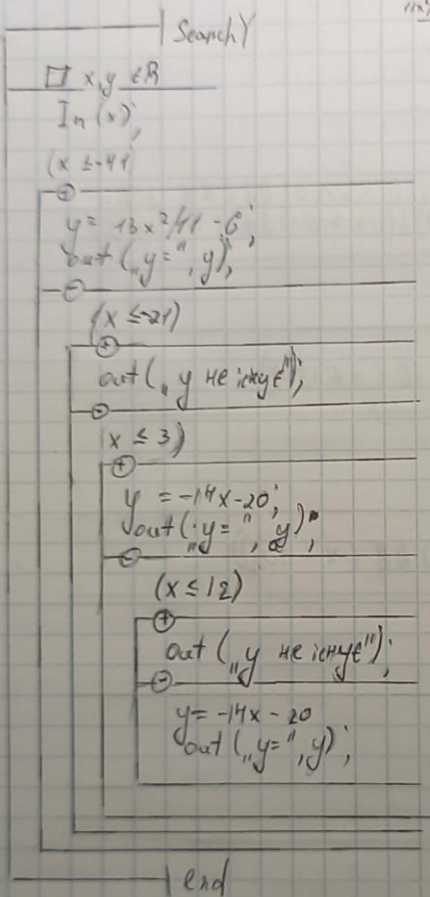 SearchY
x, y ∈ R
In (x);
(x ≤ -41)
+
y = 13x²/11 - 6;
out („y=", y);
-
(x ≤ -21)
+
out („y не існує");
-
x ≤ 3)
+
y = -14x-20;
out („y=", y);
-
(x ≤ 12)
+
out („y не існує");
-
y = -14x - 20
out („y=", y);
end